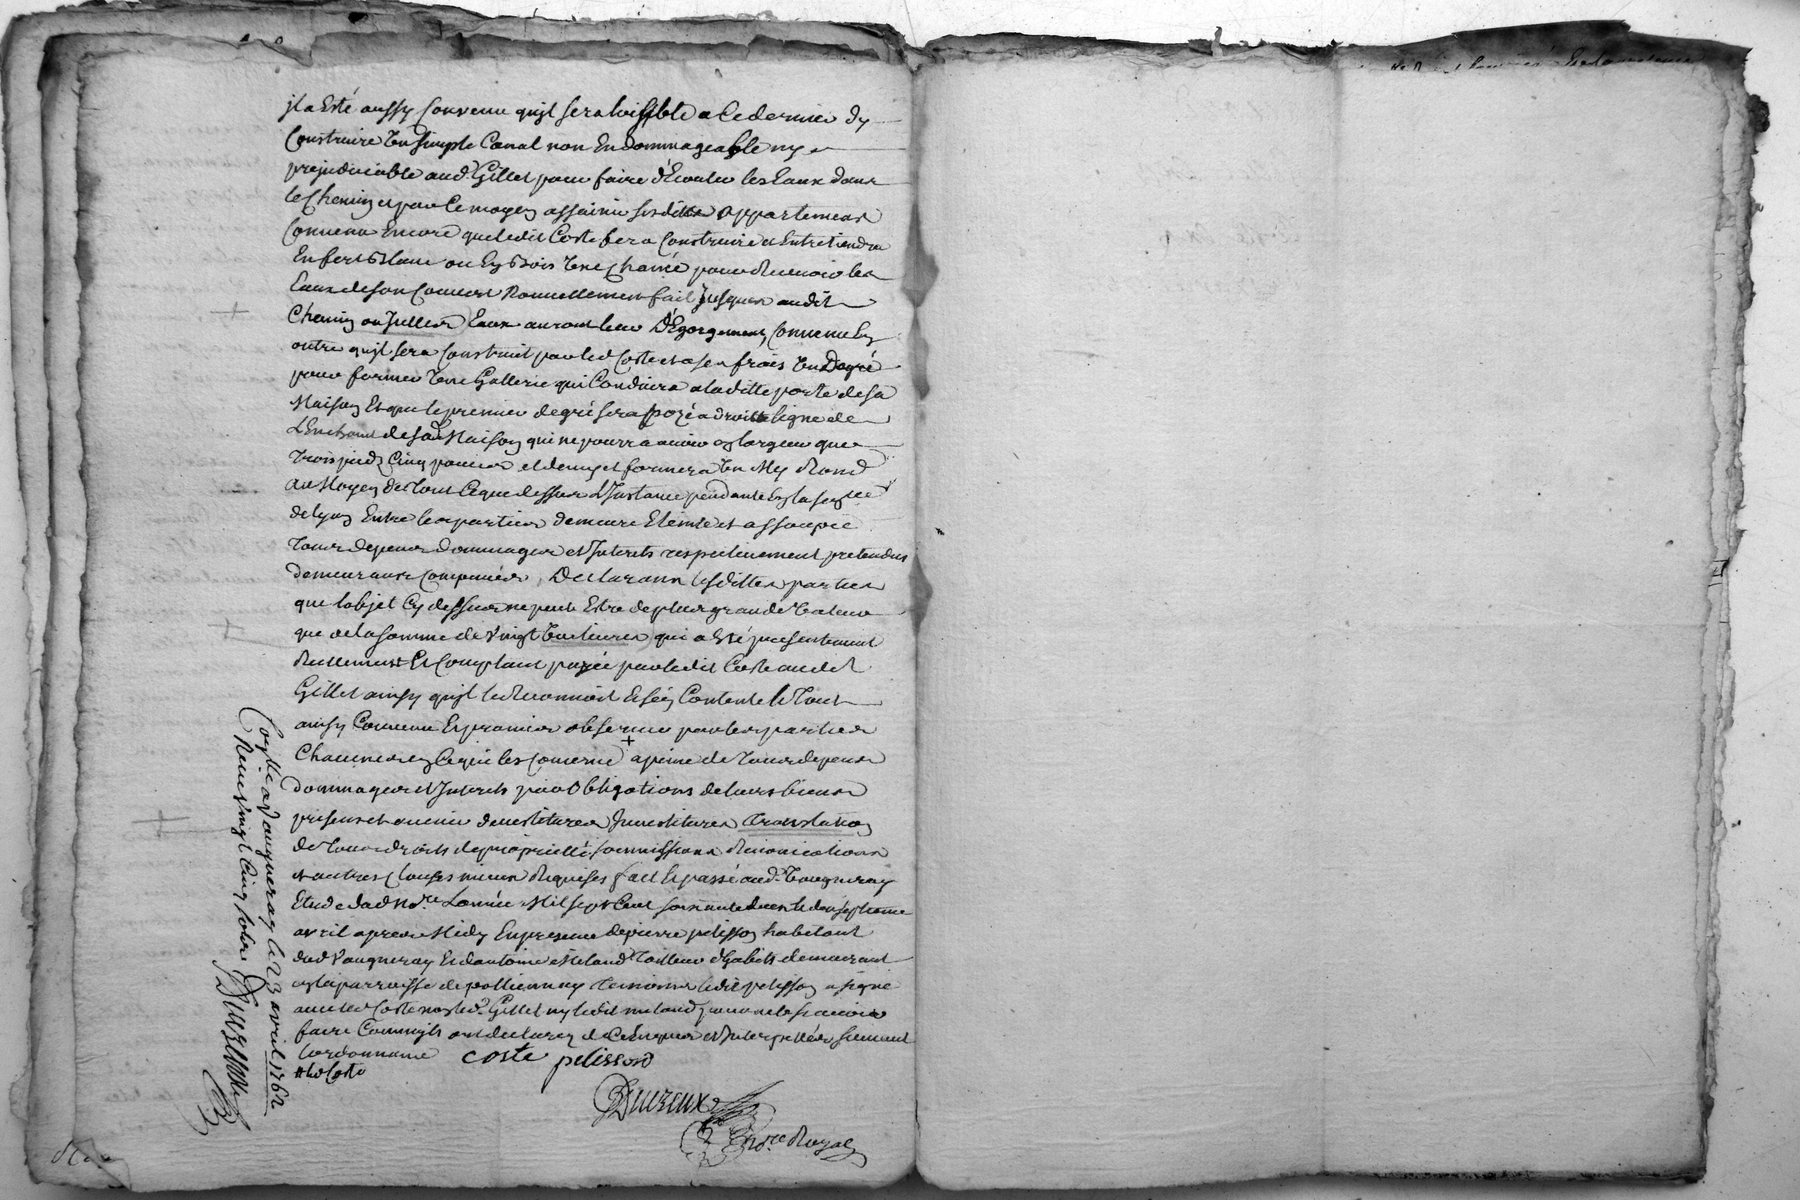 jl a Esté aussy Convenu quijl sera loissible a Ce dernier dy
Construire Un simple Canal non Endommageable ny
prejudiciable aud. Gillet pour faire d'Ecouler les Eaux dans
le Chemin et par Ce moyen assainir sesdittes appartemens
Convenu Encore que ledit Coste fera Construire et Entretiendra
En fert blanc ou En bois Une Chanée pour Recevoir les
Eaux de son Couvert Nouvellement fait jusques audit
Chemin ou jcelles Eaux auront leur D'Egorgement, Convenu En
outre quijl sera Construit par led Coste et a ses frais Un Degré
pour former Une Gallerie qui Conduira a laditte porte de sa
Maison Et que le premier degré sera pozé a droitte ligne de
de sad Maison qui ne pourra avoir en largeur que
trois pieds Cinq pouces et demy et formera Un My Rond
Au Moyen de tout Ce que dessus L'Instance pendante En la
de lyon Entre les parties demeure Eteinte et assoupie
tous depens dommages et Interets respectivement pretendus
demeurans Compensés, Declarans lesdittes parties
que l'objet Cy dessus ne peut Estre de plus grande Valeur
que de la somme de Vingt Un livres qui a Esté presentement
Reellement Et Comptant payée par ledit Coste audit
Gillet ainsy quijl le Reconnoit Et s'en Contente le Tout
ainsy Convenu Et promis observer par les parties
Chacune en Ce qui les Concerne + a peine de Tous depens
dommages et Interets par Obligations de leurs biens
presens et avenir devestitures Investitures Translation
de tous droits de proprietté soumissions Renonciations
et autres Clauses mieux Requises fait Et passé aud. Vaugneray
Etude dud No.re L'année Mil sept Cent soixante deux le
avril apres Midy En presence de pierre pelisson habitant
dud Vaugneray Et d'antoine Meland Tailleur d'habits demeurant
en la parroisse de pollionnay Temoins ledit pelisson a signé
avec led Coste non led. Gillet ny ledit meland pour ne le sçavoir
faire Comme jls ont declarez de Ce Enquis et Interpellés suivant
L'ordonnance
coste pelisson
# led Coste
Duereux
No.re Royal
Con.lle a Vaugneray le 23 avril 1762
Reçu Vingt Cinq sols